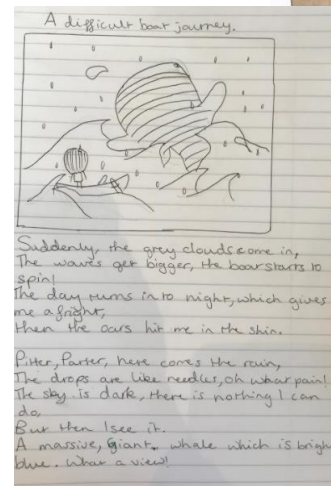 A difficult boat journey.
Suddenly, the grey clouds come in,
The waves get bigger, the boat starts to
spin!
The day turns in to night, which gives
me a fright,
then the oars hit me in the shin.
Pitter, Patter, here comes the rain,
The drops are like needles, oh what pain!
The sky is dark, there is nothing I can
do,
But then I see it.
A massive, giant, whale which is bright
blue. What a view!